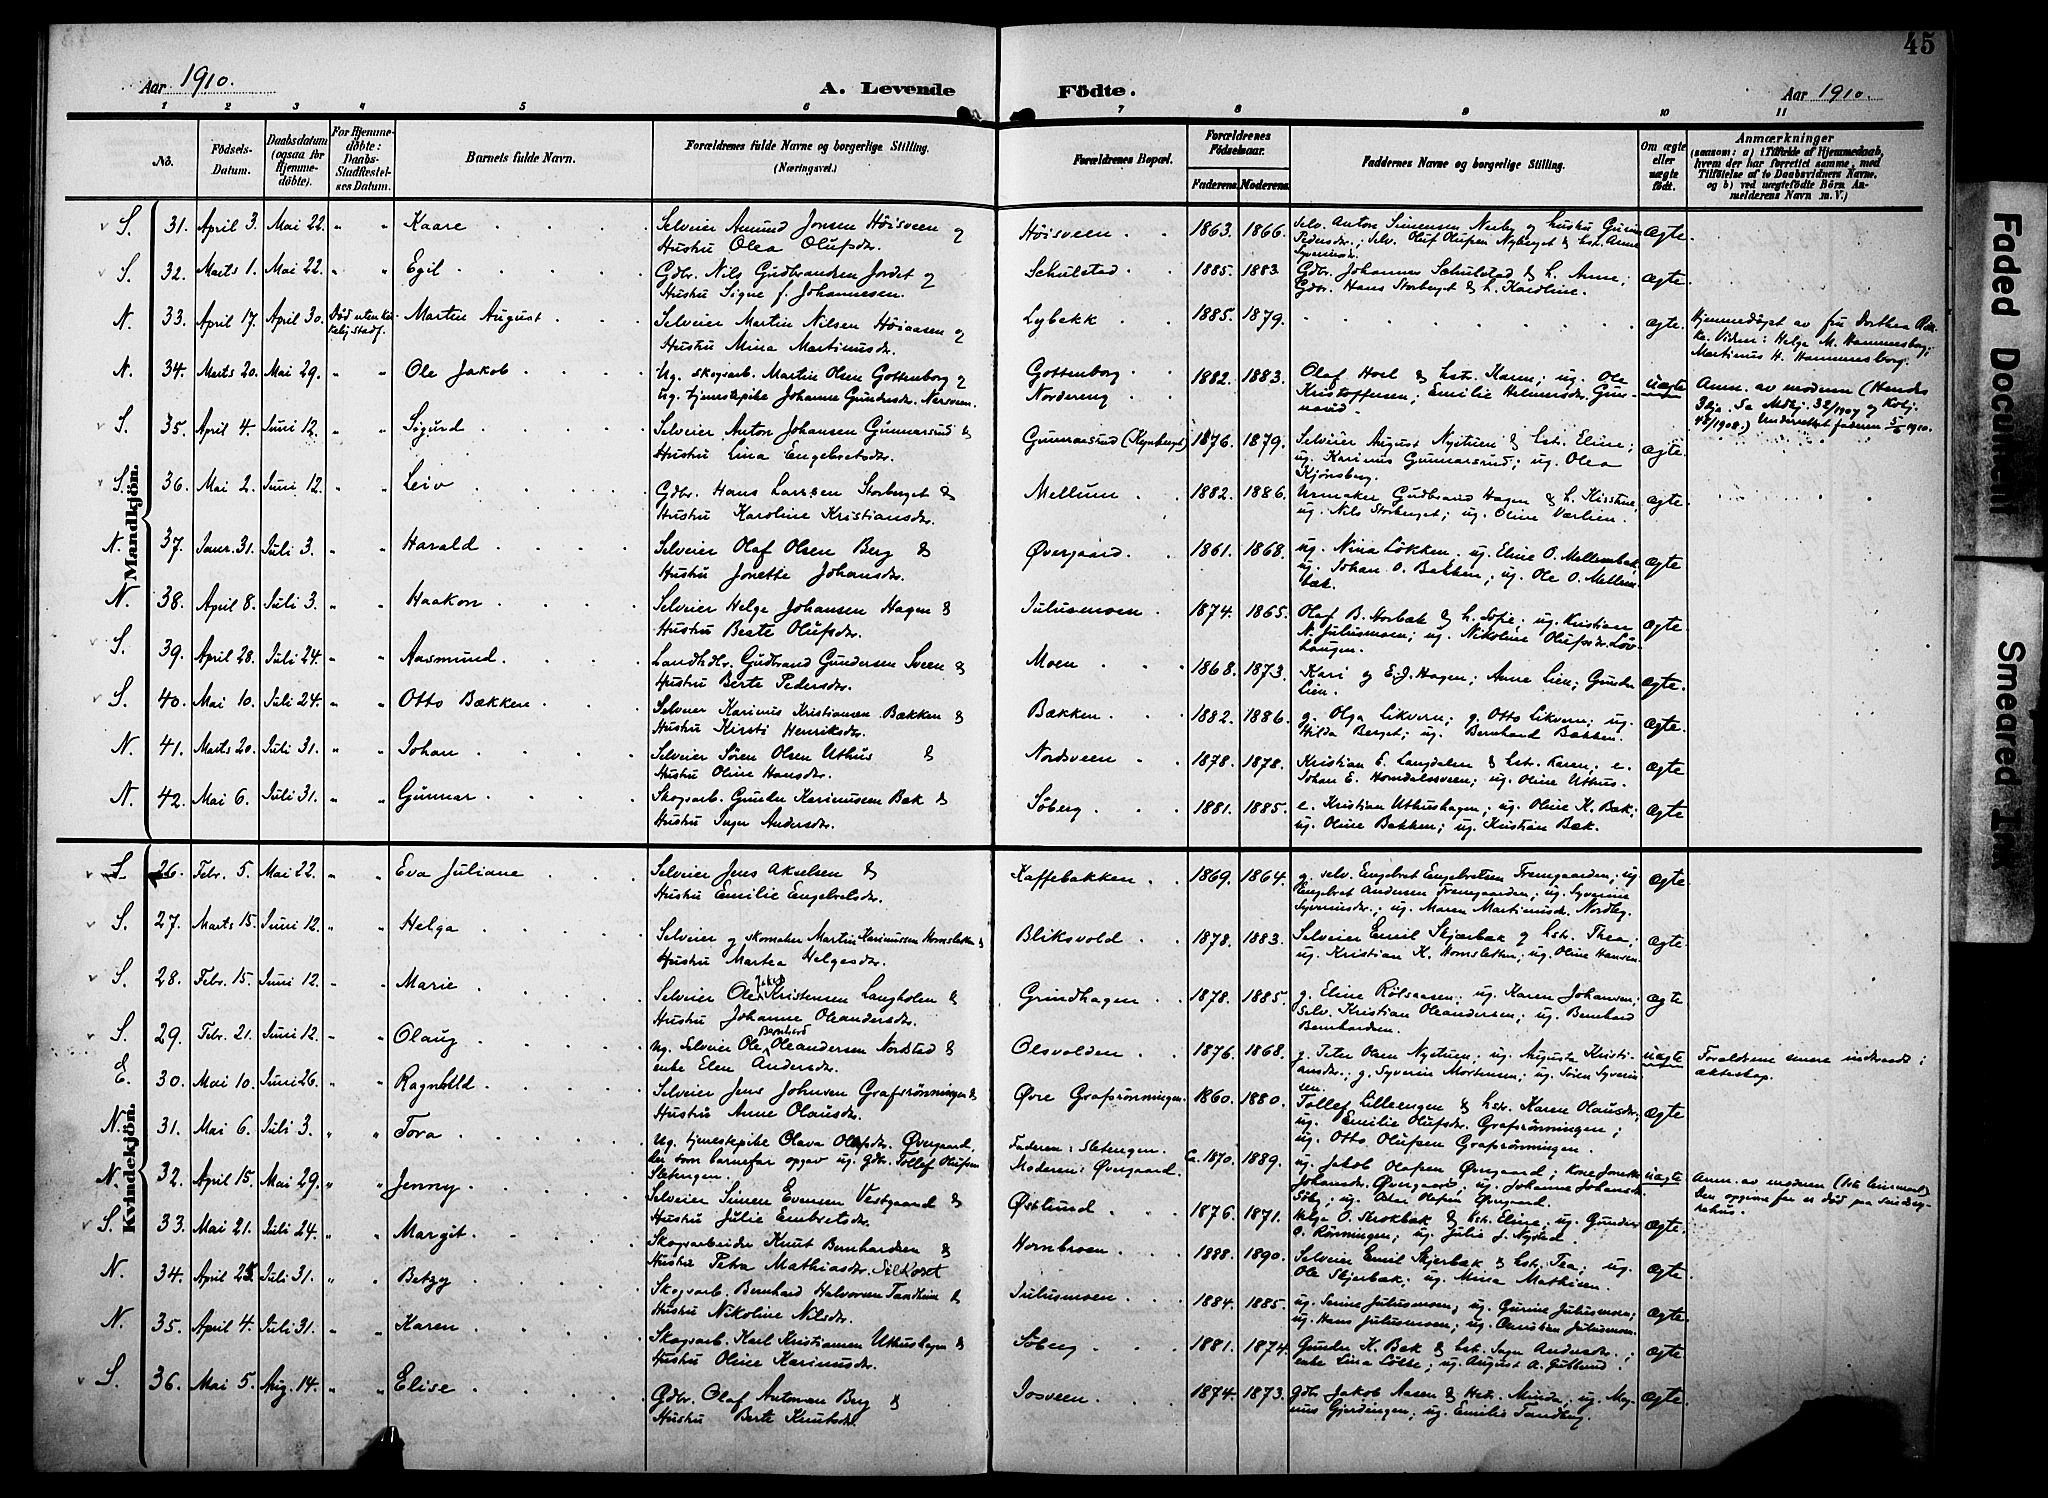 45
Aar 1910.
A. Levende Födte.
Aar 1910.
1 2 3 4 5 6 7 8 9 10 11
No.
Födsels-Datum.
Daabsdatum (ogsaa for Hjemmedöbte).
For Hjemmedöbte: Daabs-Stadfæstelses Datum.
Barnets fulde Navn.
Forældrenes fulde Navne og borgerlige Stilling. (Næringsvei.)
Forældrenes Bopæl.
Forældrenes Födselsaar.
Faderens. Moderens.
Faddernes Navne og borgerlige Stilling.
Om ægte eller uægte födt.
Anmærkninger
(saasom: a) i Tilfælde af Hjemmedaab, hvem der har forrettet samme, med Tilföielse af to Daabsvidners Navne. og b) ved uægtefödte Börn Anmelderens Navn m. V.)
Mandkjön.
S. 31. April 3. Mai 22. " " Kaare
Selveier Amund Jonsen Höisveen og
Hustru Olea Olufsdr.
Höisveen 1863. 1866.
Selv. Anton Simensen Nerby og hustru Gurine
Pedersdr.; Selv. Oluf Olufsen Nyberget & hst. Anne
Syverinsdr. Ægte.
S. 32. Marts 1. Mai 22. " " Egil
Gdbr. Nils Gudbrandsen Jordet og
Hustru Signe f. Johannesen.
Schulstad 1885. 1883.
Gdbr. Johannes Schulstad & h. Anne;
Gdbr. Hans Storberget & h. Karoline. Ægte.
N. 33. April 17. April 30. Martin August
Selveier Martin Nilsen Höiaasen og
Hustru Mina Martinusdr.
Lybekk 1885. 1879. ægte.
Hjemmedöpt av fru Dorthea
Vidner: Helge M. Hammersborg;
Martinus H. Hammersborg.
N. 34. Marts 20. Mai 29. " " Ole Jakob
Ug. skogsarb. Martin Olsen Gottenborg og
Ug. tjenestepike Johanne Gundersdr. Nersveen.
Gottenborg
Nordereng 1882. 1883.
Olaf Hoel & hst. Karen; ug. Ole
Kristoffersen; Emilie Helmersdr.
uægte
Anm. av moderen (Hendes
48/1908.) Underrettet faderen 5/6 1910.
S. 35. April 4. Juni 12. " " Sigurd
Selveier Anton Johansen Gunnarsrud &
Hustru Lina Engebretsdr.
Gunnarsrud (Kynberget) 1876. 1879.
Selveier August Nytuen & hst. Eline;
ug. Karinus Gunnarsrud; ug. Olea
Kjönsberg. Ægte.
S. 36. Mai 2. Juni 12. " " Leiv
Gdbr. Hans Larssen Storberget &
Hustru Karoline Kristiansdr.
Mellum 1882. 1886.
Urmaker Gudbrand Hagen & h. Kristine
ug. Nils Storberget; ug. Oline Værlien. Ægte.
N. 37. Janr. 31. Juli 3. " " Harald
Selveier Olaf Olsen Berg &
Hustru Jonette Johansdr.
Övergaard 1861. 1868.
ug. Nina Lökken. ug. Eline O. Mellembæk
ug. Johan O. Bakken; ug. Ole O. Mellem
bæk. Ægte
N. 38. April 8. Juli 3. " " Haakon
Selveier Helge Johansen Hagen &
Hustru Berte Olufsdr.
Julusmoen 1874. 1865.
Olaf B. Horbæk & h. Sofie; ug. Kristian
N. Julusmoen; ug. Nikoline Olufsdr. Löv-
haugen. Ægte.
S. 39. April 28. Juli 24. " " Aasmund
Landhdlr. Gudbrand Gundersen Sveen &
Hustru Berte Pedersdr.
Moen 1868. 1873.
Kari og E.J. Hagen; Anne Lien; Gunder
Lien. Ægte.
S. 40. Mai 10. Juli 24. " " Otto Bækken
Selveier Karinus Kristiansen Bækken &
Hustru Kirsti Henriksdr.
Bækken 1882. 1886.
g. Olga Likvern; g. Otto Likvern; ug.
Hilda Berget; ug. Bernhard Bækken. Ægte.
N. 41. Marts 20. Juli 31. " " Johan
Selveier Sören Olsen Uthus &
Hustru Oline Hansdr.
Nordsveen 1878. 1878.
Kristian E. Langdalen & hst. Karen; e.
Johan E. Horndalssveen; ug. Oline Uthus. Ægte
N. 42. Mai 6. Juli 31. " " Gunnar
Skogsarb. Gunder Karinusen Bæk &
Hustru Inger Andersdr.
Söberg 1881. 1885.
e. Kristian Uthushagen; ug. Oline K. Bæk;
ug. Oline Bakken; ug. Kristian Bæk. Ægte
Kvindekjön.
S. 26. Febr. 5. Mai 22. " " Eva Juliane
Selveier Jens Akselsen &
Hustru Emilie Engebretsdr.
Kaffebakken 1869. 1864.
g. selv. Engebret Engebretsen Fremgaarden; ug
Engebret Andersen Fremgaarden; ug. Syverine
Syverinsdr.; ug. Maren Martinusdr. Nordby. Ægte.
S. 27. Marts 15. Juni 12. " " Helga
Selveier og skomaker Martin Karinussen Hornsletten &
Hustru Martea Helgesdr.
Bliksvold 1878. 1883.
Selveier Emil Skjærbæk og hst. Thea;
ug. Kristian K. Hornsletten; ug. Oline Hansen. Ægte.
S. 28. Febr. 15. Juni 12. " " Marie
Selveier Ole Jakob Kristensen Langholen &
Hustru Johanne Oleandersdr.
Grindhagen 1878. 1885.
g. Eline Rölsaasen; ug. Karen Johansen;
Selv. Kristian Oleandersen; ug. Bernhard
Bernhardsen. Ægte
S. 29. Febr. 21. Juni 12. " " Olaug
Ug. Selveier Ole Bernhard Oleandersen Nordstad &
enke Elen Andersdr.
Olsvolden 1876. 1868.
g. Peter Olsen Nytuen; ug. Augusta Kristi-
ansdr. g. Syverin Mortensen; ug. Sören Syverin
sen. uægte
Forældrene senere indtraadt i
ækteskap.
E. 30. Mai 10. Juni 26. " " Ragnhild
Selveier Jens Johnsen Grafsrönningen &
Hustru Anne Olausdr.
Övre Grafsrönningen. 1860. 1880.
Tollef Lilleengen & hst. Karen Olausdr.
ug. Emilie Olufsdr. Grafsrönningen;
ug. Otto Olufsen Grafsrönningen. Ægte
N. 31. Mai 6. Juli 3. " " Tora
Ug. tjenestepike Olava Olufsdr. Övergaard,
der som barnefar opgav ug. gdbr. Tollef Olufsen
Sletengen.
Faderen: Sletengen.
Moderen: Övergaard. Ca. 1870. 1889.
ug. Jakob Olafsen Övergaard; Kone Jonette
Johansdr. Övergaard, ug. Johanne Johansdr.
Söby; ug. Olafsen Övergaard. uægte
Anm. av moderen
Den opgivne far er död paa sindssy-
gehus.
N. 32. April 15. Mai 29. " " Jenny
Selveier Simen Evensen Vestgaard &
Hustru Julie Embretsdr.
Östlund 1876. 1871.
Helge O. Skrokbæk & hst. Eline; ug. Gunder
O. Rönningen; ug. Julie J. Nystad. Ægte.
S. 33. Mai 21. Juli 24. " " Margit
Skogsarbeider Knut Bernhardsen &
Hustru Petra Mathiasdr. Silkoset
Hornbroen 1888. 1890.
Selveier Emil Skjerbæk & hst. Tea; ug.
Ole Skjerbæk; ug. Mina Mathisen. Ægte.
N. 34. April 25. Juli 31. " " Betzy
Skogsarb. Bernhard Halvorsen Tandheim &
Hustru Nikoline Nilsdr.
Julusmoen 1884. 1885.
ug. Serine Julusmoen; ug. Gurine Julusmoen;
ug. Hans Julusmoen; ug. Christian Julusmoen. Ægte
N. 35. April 4. Juli 31. " " Karen
Skogsarb. Karl Kristiansen Uthushagen &
Hustru Oline Karinusdr.
Söberg 1881. 1874.
Gunder K. Bæk & hst. Inger Andersdr.;
enke Lina Lötte; ug. August A. Ægte
S. 36. Mai 5. Aug. 14. " " Elise
Gdbr. Olaf Antonsen Berg &
Hustru Berte Knutsdr.
Josveen 1874. 1873.
Gdbr. Jakob Aasen & Hst. Minda; ug. Mag-
nus Gjerdingen; ug. Emilie Tandberg. Ægte.
Faded Document
Smeared Ink